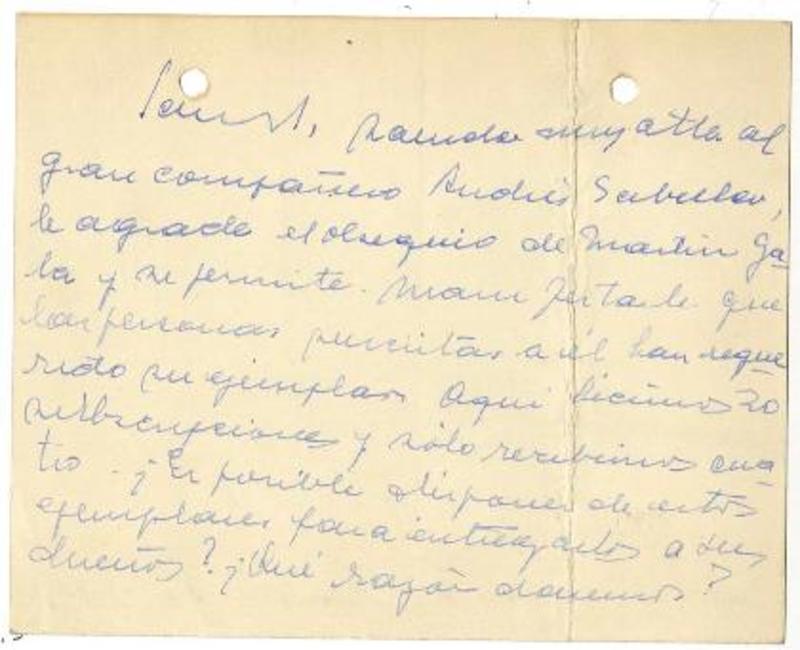 saluda muy atte al
gran compañero Andrés Sabella,
le agrade el obsequio de Martín Ga-
la y se permite. Manifestarle que
las personas suscritas a él han reque
rido su ejemplar. Aquí hicimos 20
subscripciones y sólo recibimos cua-
tro. ¿Es posible disponer de estos
ejemplares para entregarlos a sus
dueños? ¿Qué razón daremos?